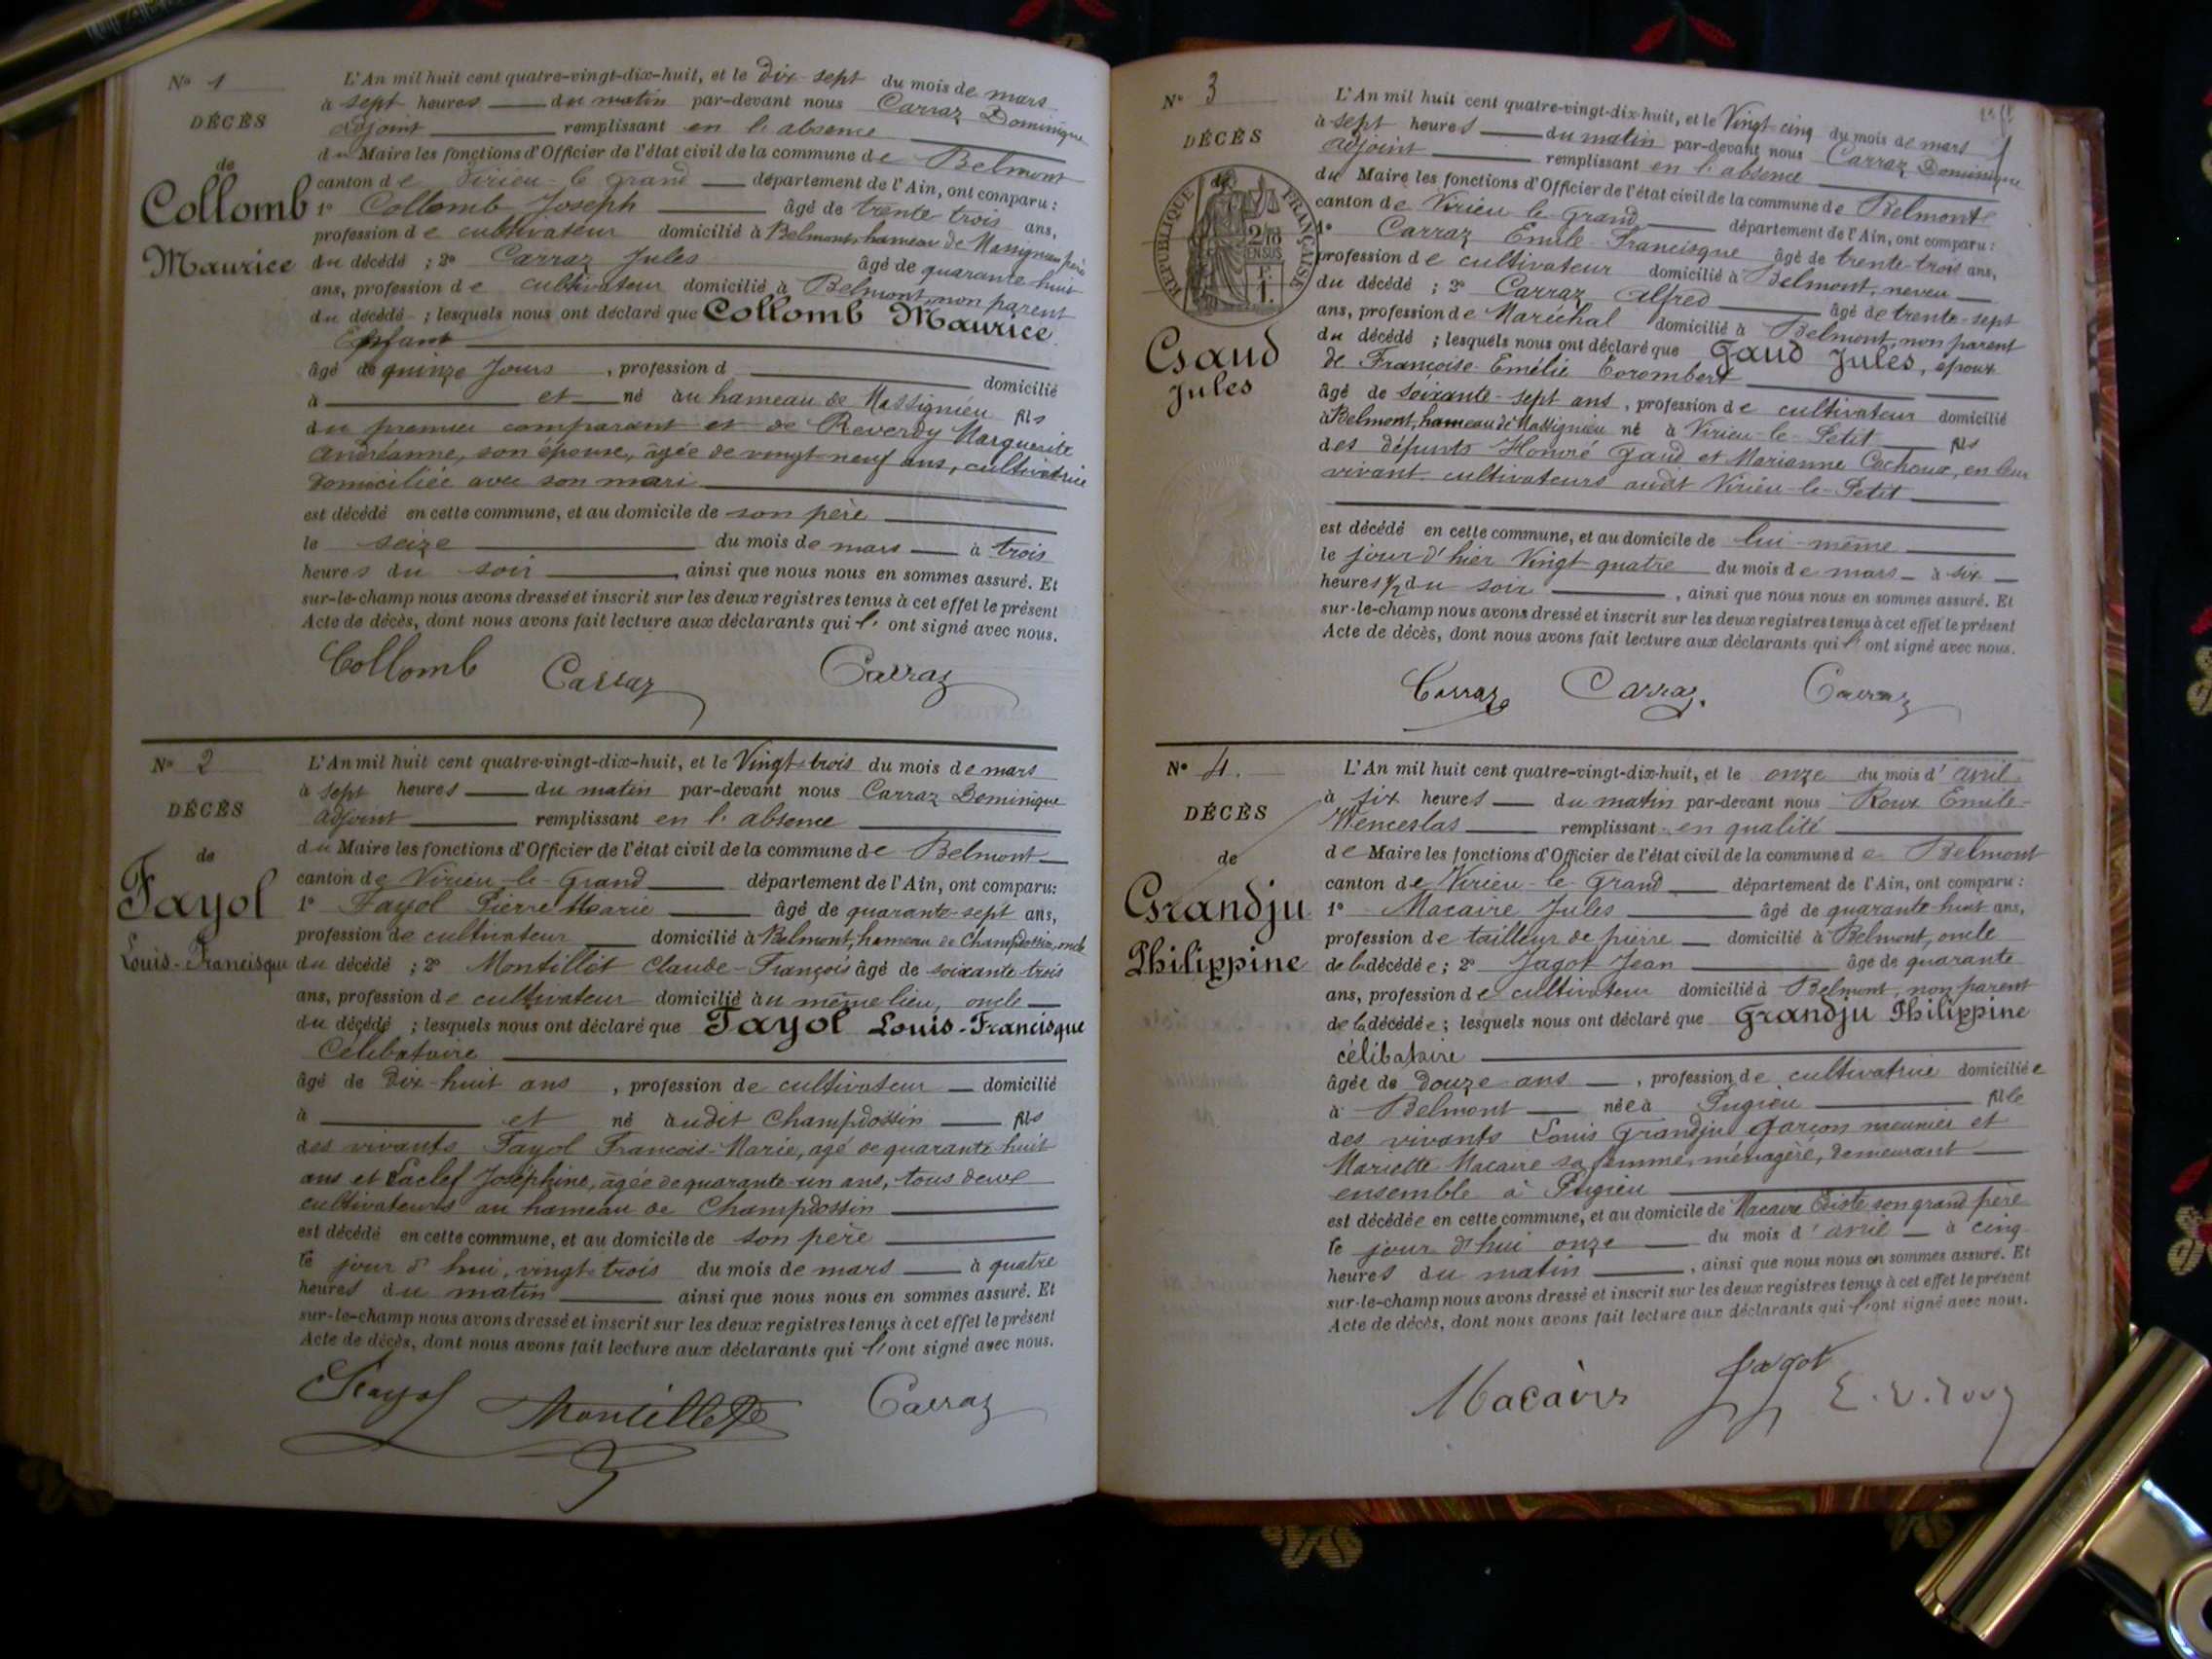 N° 1
DÉCÈS
de
Collomb
Maurice
L'An mil huit cent quatre-vingt-dix-huit, et le dix-sept du mois de mars
à sept heures du matin par-devant nous Carraz Dominique
adjoint remplissant en l'absence
du Maire les fonctions d'Officier de l'état civil de la commune de Belmont
canton de Virieu-le-Grand département de l'Ain, ont comparu :
1° Collomb Joseph âgé de trente trois ans,
profession de cultivateur domicilié à Belmont, hameau de Massignieu père
du décédé ; 2° Carraz Jules âgé de quarante huit
ans, profession de cultivateur domicilié à Belmont, non parent
du décédé ; lesquels nous ont déclaré que Collomb Maurice
Enfant
âgé de quinze jours , profession d domicilié
à et né au hameau de Massignieu fils
du premier comparant et de Reverdy Marguerite
Andréanne, son épouse, âgée de vingt-neuf ans, cultivatrice
domiciliée avec son mari
est décédé en cette commune, et au domicile de son père
le seize du mois de mars à trois
heures du soir , ainsi que nous nous en sommes assuré. Et
sur-le-champ nous avons dressé et inscrit sur les deux registres tenus à cet effet le présent
Acte de décès, dont nous avons fait lecture aux déclarants qui l' ont signé avec nous.
Collomb Carraz Carraz
N° 2
DÉCÈS
de
Fayol
Louis-Francisque
L'An mil huit cent quatre-vingt-dix-huit, et le Vingt-trois du mois de mars
à sept heures du matin par-devant nous Carraz Dominique
adjoint remplissant en l'absence
du Maire les fonctions d'Officier de l'état civil de la commune de Belmont
canton de Virieu-le-Grand département de l'Ain, ont comparu:
1° Fayol Pierre Marie âgé de quarante-sept ans,
profession de cultivateur domicilié à Belmont, hameau de Champdossin, oncle
du décédé ; 2° Montillet Claude-François âgé de soixante-trois
ans, profession de cultivateur domicilié au même lieu, oncle
du décédé ; lesquels nous ont déclaré que Fayol Louis-Francisque
Célibataire
âgé de Dix-huit ans , profession de cultivateur domicilié
à et né audit Champdossin fils
des vivants Fayol François-Marie, âgé de quarante-huit
ans et Laclef Joséphine, âgée de quarante-un ans, tous deux
cultivateurs au hameau de Champdossin
est décédé en cette commune, et au domicile de son père
le jour d'hui, vingt-trois du mois de mars à quatre
heures du matin ainsi que nous nous en sommes assuré. Et
sur-le-champ nous avons dressé et inscrit sur les deux registres tenus à cet effet le présent
Acte de décès, dont nous avons fait lecture aux déclarants qui l'ont signé avec nous.
Fayol Montillet Carraz
N° 3
DÉCÈS
de
RÉPUBLIQUE FRANÇAISE
2/10
EN SUS
1 F.
Gaud
Jules
L'An mil huit cent quatre-vingt-dix-huit, et le Vingt-cinq du mois de mars
à sept heures du matin par-devant nous Carraz Dominique
adjoint remplissant en l'absence
du Maire les fonctions d'Officier de l'état civil de la commune de Belmont
canton de Virieu-le-Grand département de l'Ain, ont comparu :
1° Carraz Emile-Francisque âgé de trente-trois ans,
profession de cultivateur domicilié à Belmont, neveu
du décédé ; 2° Carraz Alfred âgé de trente-sept
ans, profession de Maréchal domicilié à Belmont, non parent
du décédé ; lesquels nous ont déclaré que Gaud Jules, époux
de Françoise-Emélie Corombert
âgé de soixante-sept ans , profession de cultivateur domicilié
à Belmont, hameau de Massignieu né à Virieu-le-Petit fils
des défunts Honoré Gaud et Marianne Cochoux, en leur
vivant cultivateurs audit Virieu-le-Petit
est décédé en cette commune, et au domicile de lui-même
le jour d'hier Vingt-quatre du mois de mars à six
heures 1/2 du soir , ainsi que nous nous en sommes assuré. Et
sur-le-champ nous avons dressé et inscrit sur les deux registres tenus à cet effet le présent
Acte de décès, dont nous avons fait lecture aux déclarants qui l' ont signé avec nous.
Carraz Carraz Carraz
N° 4.
DÉCÈS
de
Grandju
Philippine
L'An mil huit cent quatre-vingt-dix-huit, et le onze du mois d'avril
à six heures du matin par-devant nous Roux Emile-
Wenceslas remplissant en qualité
de Maire les fonctions d'Officier de l'état civil de la commune de Belmont
canton de Virieu-le-Grand département de l'Ain, ont comparu :
1° Macaire Jules âgé de quarante-huit ans,
profession de tailleur de pierre domicilié à Belmont, oncle
de la décédée ; 2° Jagot Jean âgé de quarante
ans, profession de cultivateur domicilié à Belmont, non parent
de la décédée ; lesquels nous ont déclaré que Grandju Philippine
célibataire
âgée de douze ans , profession de cultivatrice domiciliée
à Belmont née à Pugieu fille
des vivants Louis Grandju garçon meunier et
Mariette Macaire sa femme, ménagère, demeurant
ensemble à Pugieu
est décédée en cette commune, et au domicile de Macaire son grand père
le jour d'hui onze du mois d'avril à cinq
heures du matin , ainsi que nous nous en sommes assuré. Et
sur-le-champ nous avons dressé et inscrit sur les deux registres tenus à cet effet le présent
Acte de décès, dont nous avons fait lecture aux déclarants qui l'ont signé avec nous.
Macaire Jagot E. W. Roux